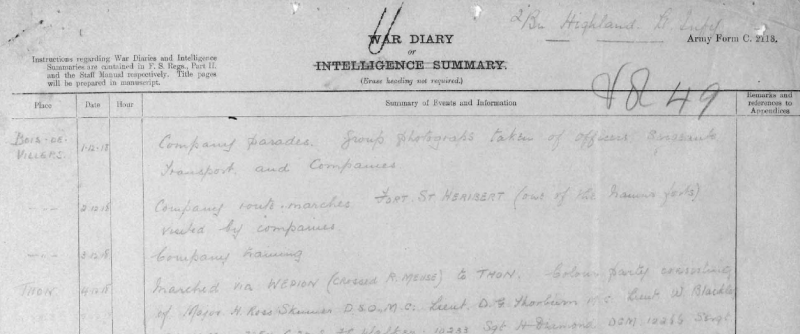 2/Bn Highland L. Infy
WAR DIARY
Army Form C. 2118.
or
Instructions regarding War Diaries and Intelligence
INTELLIGENCE SUMMARY.
Summaries are contained in F. S. Regs., Part II.
and the Staff Manual respectively. Title pages
(Erase heading not required.)
will be prepared in manuscript.
49
Place Date Hour Summary of Events and Information Remarks and
references to
Appendices
BOIS-DE- 1.12.18 Company parades. Group photographs taken of officers, Sergeants
VILLERS. Transport, and Companies
2.12.18 Company route marches FORT ST HERIBERT (one of the Namur forts)
visited by companies
3.12.18 Company training
THON. 4.12.18 Marched via WEPION (crossed R. MEUSE) to THON. Colour party consisting
of Major H. Ross Skinner D.S.O. M.C. Lieut. D. G. Lieut W.
Sgt DCM Sergt